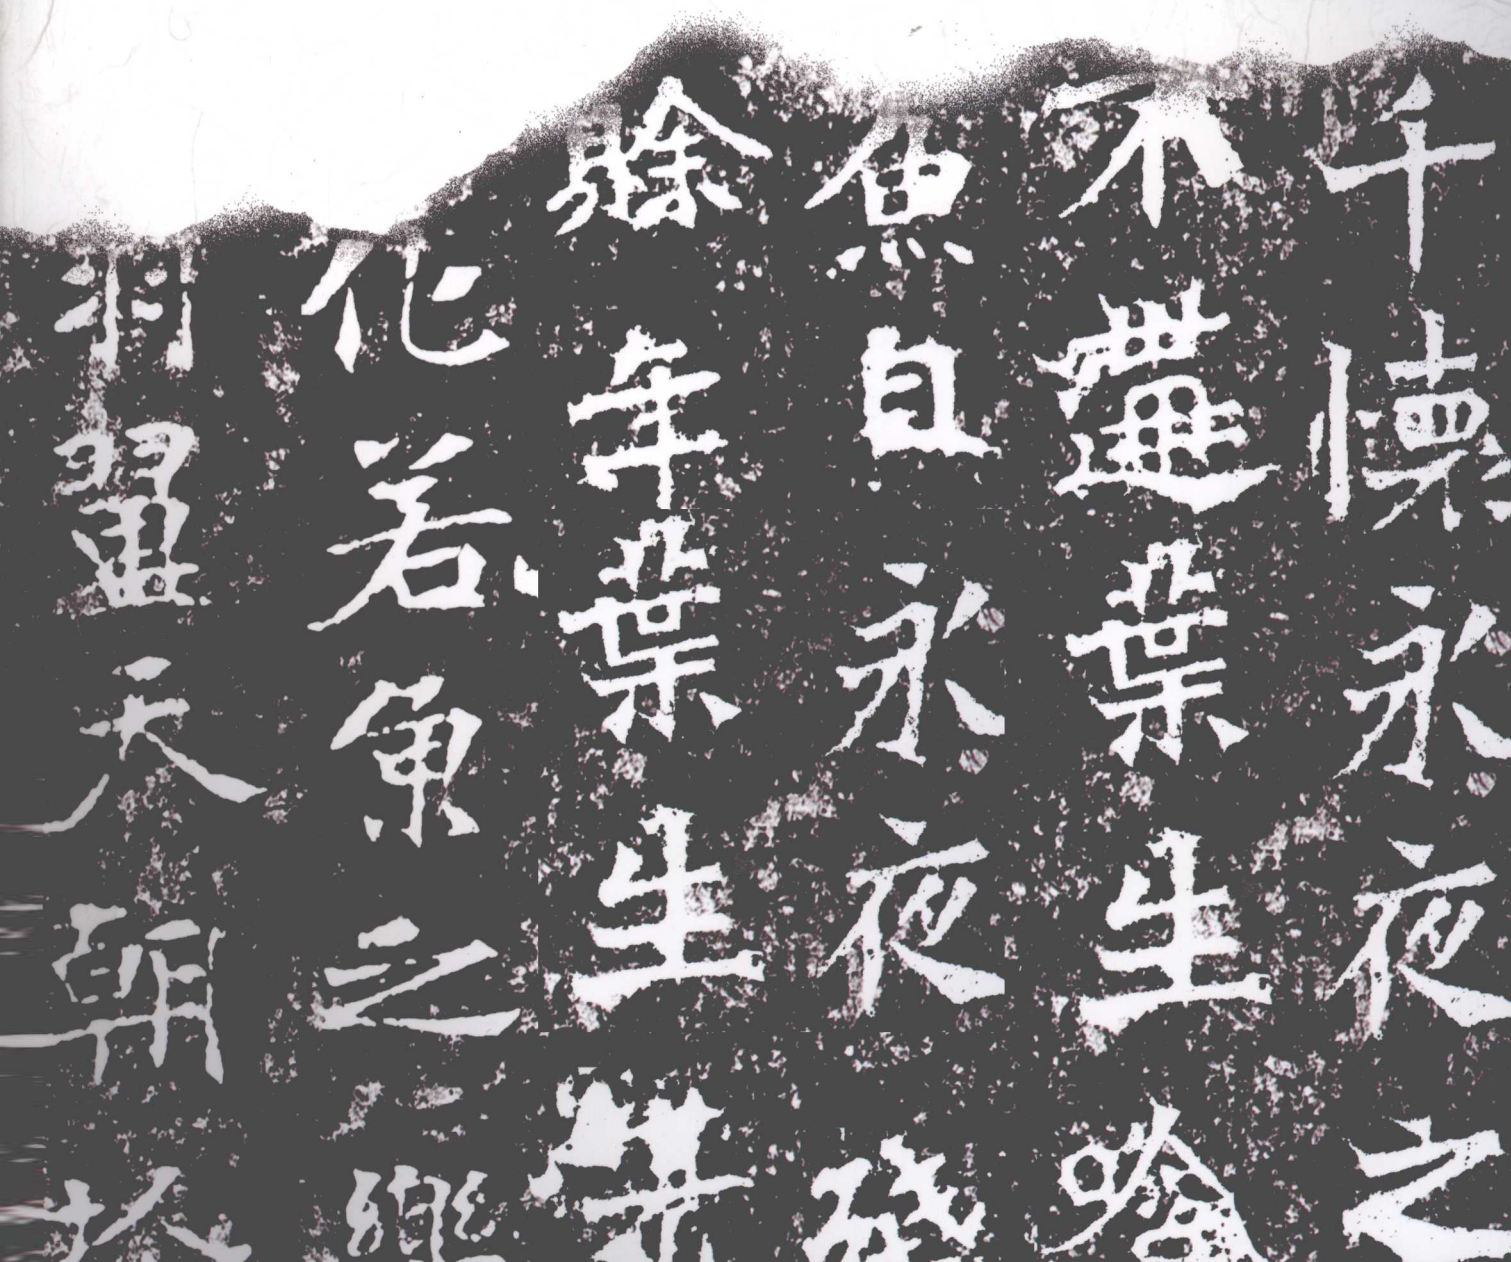 千懷永夜之
不遷葉生
魚自永夜
餘年葉生
化若魚之樂
羽翼天朝